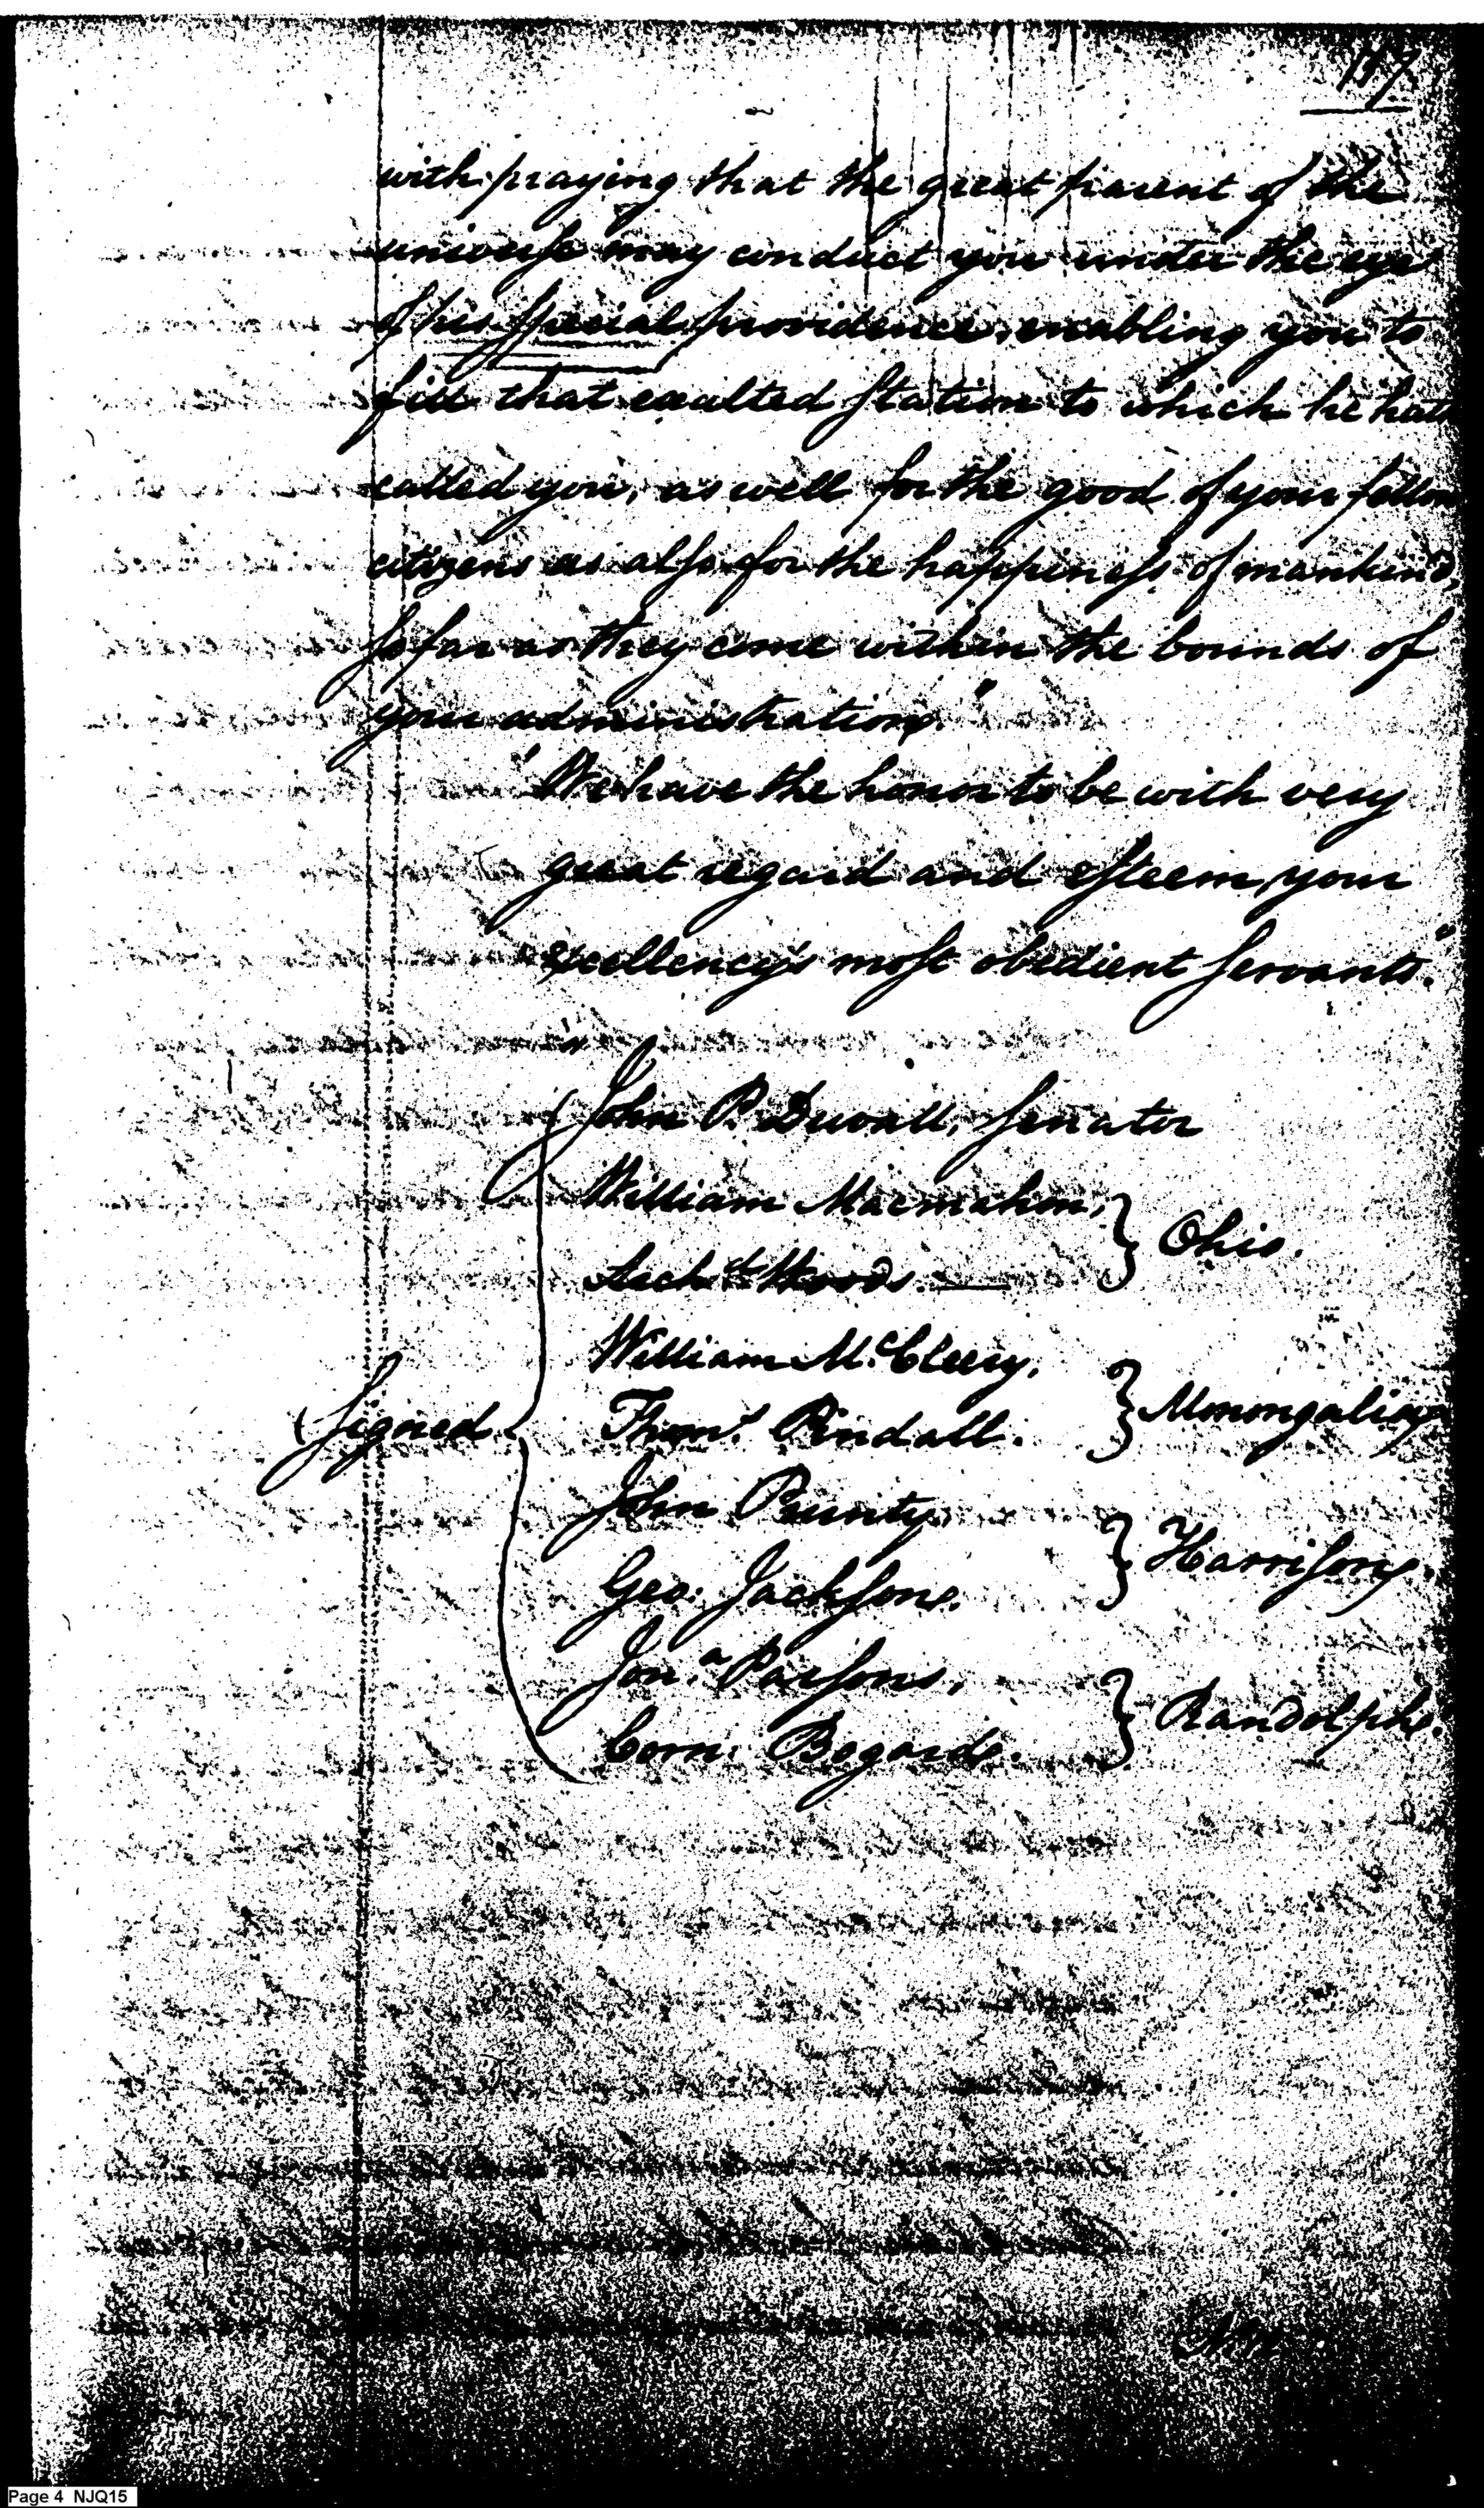 117
with praying that the great parent of the
universe may conduct you under the eye
of his special providence, enabling you to
fill that exalted station to which he hath
called you, as well for the good of your fellow
citizens as also for the happiness of mankind,
so far as they come within the bounds of
your administration."
"We have the honor to be with very
great regard and esteem, your
excellency's most obedient servants."
John P. Duvall, Senator
William Macmahon,
Ohio.
Archd. Woods.
William McCleery.
Signed
Thoms. Pindall.
Monongalia
John Prunty.
Harrison.
Geo: Jackson.
Jona. Parsons,
Randolph.
Corn: Bogard.
Page 4 NJQ15